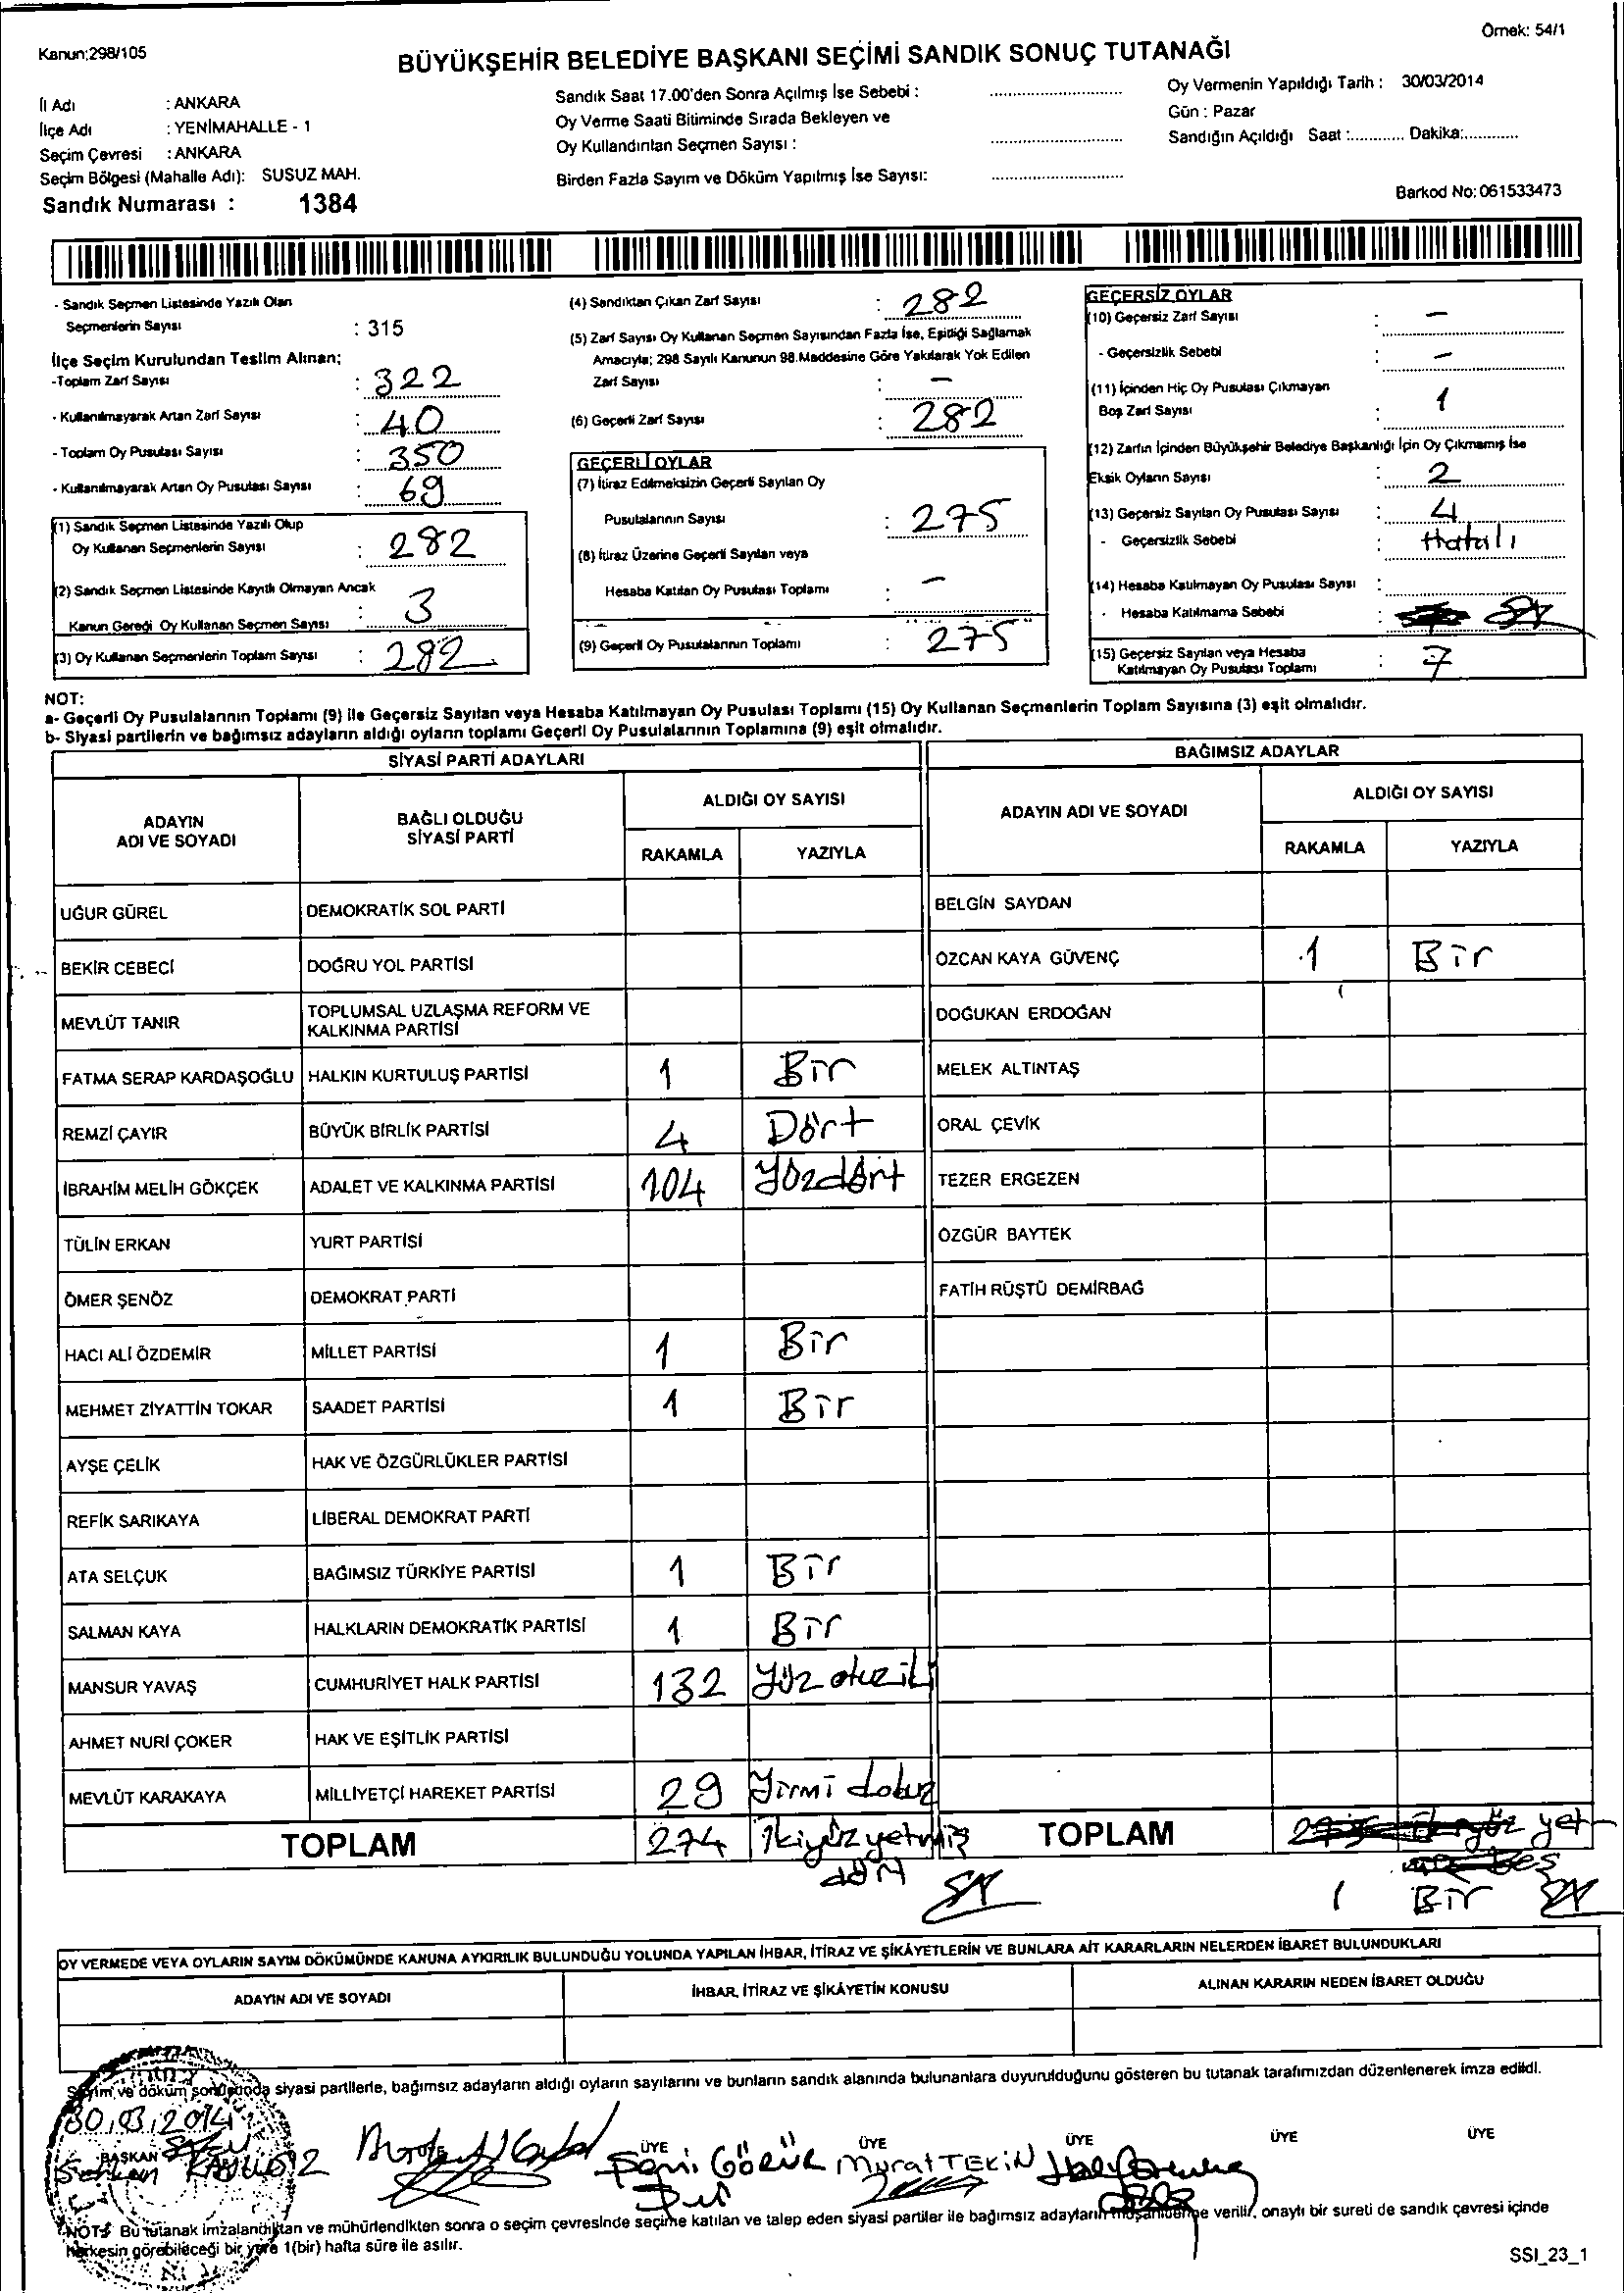 Örnek: 54/1
Kanun:298/105
BÜYÜKŞEHİR BELEDİYE BAŞKANI SEÇİMİ SANDIK SONUÇ TUTANAĞI
İl Adı : ANKARA
İlçe Adı : YENİMAHALLE - 1
Seçim Çevresi : ANKARA
Seçim Bölgesi (Mahalle Adı): SUSUZ MAH.
Sandık Numarası : 1384
Sandık Saat 17.00'den Sonra Açılmış İse Sebebi : ........................
Oy Verme Saati Bitiminde Sırada Bekleyen ve
Oy Kullandırılan Seçmen Sayısı : ........................
Birden Fazla Sayım ve Döküm Yapılmış İse Sayısı: ........................
Oy Vermenin Yapıldığı Tarih : 30/03/2014
Gün : Pazar
Sandığın Açıldığı Saat :............ Dakika:............
Barkod No: 061533473
- Sandık Seçmen Listesinde Yazılı Olan
Seçmenlerin Sayısı : 315
İlçe Seçim Kurulundan Teslim Alınan;
-Toplam Zarf Sayısı : 322
- Kullanılmayarak Artan Zarf Sayısı : 40
- Toplam Oy Pusulası Sayısı : 350
- Kullanılmayarak Artan Oy Pusulası Sayısı : 69
(1) Sandık Seçmen Listesinde Yazılı Olup
Oy Kullanan Seçmenlerin Sayısı : 282
(2) Sandık Seçmen Listesinde Kayıtlı Olmayan Ancak
Kanun Gereği Oy Kullanan Seçmen Sayısı : 3
(3) Oy Kullanan Seçmenlerin Toplam Sayısı : 282
(4) Sandıktan Çıkan Zarf Sayısı : 282
(5) Zarf Sayısı Oy Kullanan Seçmen Sayısından Fazla İse, Eşitliği Sağlamak
Amacıyla; 298 Sayılı Kanunun 98.Maddesine Göre Yakılarak Yok Edilen
Zarf Sayısı : -
(6) Geçerli Zarf Sayısı : 282
GEÇERLİ OYLAR
(7) İtiraz Edilmeksizin Geçerli Sayılan Oy
Pusulalarının Sayısı : 275
(8) İtiraz Üzerine Geçerli Sayılan veya
Hesaba Katılan Oy Pusulası Toplamı : -
(9) Geçerli Oy Pusulalarının Toplamı : 275
GEÇERSİZ OYLAR
(10) Geçersiz Zarf Sayısı : -
- Geçersizlik Sebebi : -
(11) İçinden Hiç Oy Pusulası Çıkmayan
Boş Zarf Sayısı : 1
(12) Zarfın İçinden Büyükşehir Belediye Başkanlığı İçin Oy Çıkmamış İse
Eksik Oyların Sayısı : 2
(13) Geçersiz Sayılan Oy Pusulası Sayısı : 4
- Geçersizlik Sebebi : Hatalı
(14) Hesaba Katılmayan Oy Pusulası Sayısı :
- Hesaba Katılmama Sebebi :
(15) Geçersiz Sayılan veya Hesaba
Katılmayan Oy Pusulası Toplamı : 7
NOT:
a- Geçerli Oy Pusulalarının Toplamı (9) ile Geçersiz Sayılan veya Hesaba Katılmayan Oy Pusulası Toplamı (15) Oy Kullanan Seçmenlerin Toplam Sayısına (3) eşit olmalıdır.
b- Siyasi partilerin ve bağımsız adayların aldığı oyların toplamı Geçerli Oy Pusulalarının Toplamına (9) eşit olmalıdır.
SİYASİ PARTİ ADAYLARI
ADAYIN ADI VE SOYADI BAĞLI OLDUĞU SİYASİ PARTİ ALDIĞI OY SAYISI
RAKAMLA YAZIYLA
UĞUR GÜREL DEMOKRATİK SOL PARTİ
BEKİR CEBECİ DOĞRU YOL PARTİSİ
MEVLÜT TANIR TOPLUMSAL UZLAŞMA REFORM VE KALKINMA PARTİSİ
FATMA SERAP KARDAŞOĞLU HALKIN KURTULUŞ PARTİSİ 1 Bir
REMZİ ÇAYIR BÜYÜK BİRLİK PARTİSİ 4 Dört
İBRAHİM MELİH GÖKÇEK ADALET VE KALKINMA PARTİSİ 104 Yüzdört
TÜLİN ERKAN YURT PARTİSİ
ÖMER ŞENÖZ DEMOKRAT PARTİ
HACI ALİ ÖZDEMİR MİLLET PARTİSİ 1 Bir
MEHMET ZİYATTİN TOKAR SAADET PARTİSİ 1 Bir
AYŞE ÇELİK HAK VE ÖZGÜRLÜKLER PARTİSİ
REFİK SARIKAYA LİBERAL DEMOKRAT PARTİ
ATA SELÇUK BAĞIMSIZ TÜRKİYE PARTİSİ 1 Bir
SALMAN KAYA HALKLARIN DEMOKRATİK PARTİSİ 1 Bir
MANSUR YAVAŞ CUMHURİYET HALK PARTİSİ 132 Yüz otuz
AHMET NURİ ÇOKER HAK VE EŞİTLİK PARTİSİ
MEVLÜT KARAKAYA MİLLİYETÇİ HAREKET PARTİSİ 29 Yirmi dokuz
TOPLAM 274 İkiyüz yetmiş dört
BAĞIMSIZ ADAYLAR
ADAYIN ADI VE SOYADI ALDIĞI OY SAYISI
RAKAMLA YAZIYLA
BELGİN SAYDAN
ÖZCAN KAYA GÜVENÇ 1 Bir
DOĞUKAN ERDOĞAN
MELEK ALTINTAŞ
ORAL ÇEVİK
TEZER ERGEZEN
ÖZGÜR BAYTEK
FATİH RÜŞTÜ DEMİRBAĞ
TOPLAM
1 Bir
OY VERMEDE VEYA OYLARIN SAYIM DÖKÜMÜNDE KANUNA AYKIRILIK BULUNDUĞU YOLUNDA YAPILAN İHBAR, İTİRAZ VE ŞİKÂYETLERİN VE BUNLARA AİT KARARLARIN NELERDEN İBARET BULUNDUKLARI
ADAYIN ADI VE SOYADI İHBAR, İTİRAZ VE ŞİKÂYETİN KONUSU ALINAN KARARIN NEDEN İBARET OLDUĞU
Sayım ve döküm sonucunda siyasi partilerle, bağımsız adayların aldığı oyların sayılarını ve bunların sandık alanında bulunanlara duyurulduğunu gösteren bu tutanak tarafımızdan düzenlenerek imza edildi.
30.03.2014
BAŞKAN ÜYE ÜYE ÜYE ÜYE ÜYE
Serkan
Murat TEKİN
NOT: Bu tutanak imzalandıktan ve mühürlendikten sonra o seçim çevresinde seçime katılan ve talep eden siyasi partiler ile bağımsız adayların müşahitlerine verilir, onaylı bir sureti de sandık çevresi içinde
herkesin görebileceği bir yere 1(bir) hafta süre ile asılır.
SSI_23_1